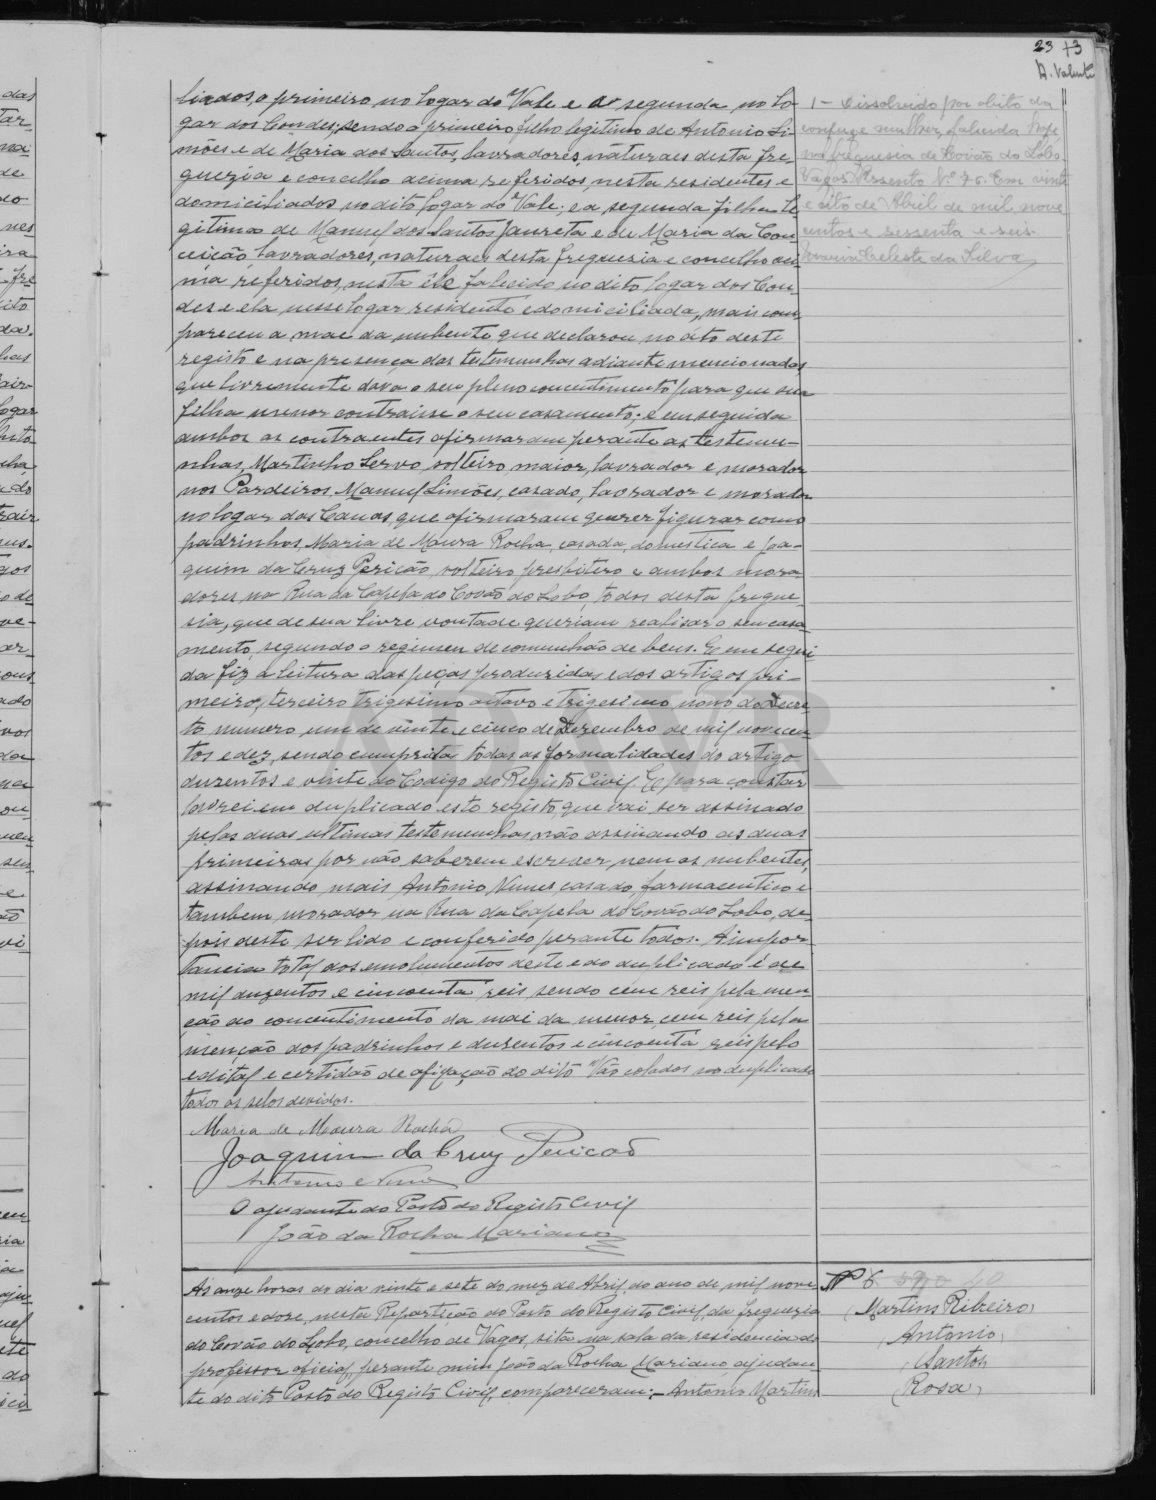 23 73
A. Valente
liados, o primeiro no logar do Vale e a segunda no lo-
gar dos Condes; sendo o primeiro filho legitimo de Antonio Si-
mões e de Maria dos Santos, lavradores, naturaes desta fre-
guezia e concelho acima referidos, nesta residentes e
domiciliados no dito logar do Vale; e a segunda filha le-
gitima de Manuel dos Santos Janreta e de Maria da Con-
ceição, lavradores, naturaes desta freguesia e concelho aci-
ma referidos, nesta êle falecido no dito logar dos Con-
des e ela nesse logar residente e domiciliada, mais com-
pareceu a mãe da nubente que declarou no áto deste
registo e na presença das testemunhas adiante mencionadas
que livremente dava o seu pleno concentimento para que sua
filha menor contraisse o seu casamento; e em seguida
ambos os contraentes afirmaram perante as testemu-
nhas, Martinho Servo, solteiro maior, lavrador e morador
nos Pardeiros, Manuel Simões, casado, lavrador e morador
no logar das Canas, que afirmaram querer figurar como
padrinhos, Maria de Moura Rocha, casada, domestica e Joa-
quim da Cruz Pericão, solteiro, presbitero e ambos mora-
dores na Rua da Capela do Covão do Lobo, todos desta fregue-
sia, que de sua livre vontade queriam realisar o seu casa-
mento, segundo o regimen de comunhão de bens. E em segui
da fiz a leitura das peças produzidas e dos artigos pri-
meiro, terceiro trigesimo outavo e trigesimo nono do Decre-
to numero um de vinte e cinco de Dezembro de mil novecen-
tos e dez, sendo cumpridas todas as formalidades do artigo
duzentos e vinte do Codigo do Registo Civil. E para constar
lavrei em duplicado este registo, que vai ser assinado
pelas duas ultimas testemunhas, não assinando as duas
primeiras por não saberem escrever, nem os nubentes,
assinando, mais Antonio Nunes, casado, farmaceutico e
tambem morador na Rua da Capela do Covão do Lobo, de-
pois deste ser lido e conferido perante todos. A impor-
tancia total dos emolumentos deste e do duplicado é de
mil duzentos e cincoenta reis sendo cem reis pela men-
ção do concentimento da mãi da menor, cem reis pela
menção dos padrinhos e duzentos e cincoenta reis pelo
edital e certidão de afixação do dito. Vão colados no duplicado
todos os selos devidos.
Maria de Moura Rocha
Joaquim da Cruz Pericão
Antonio Nunes
O ajudante do Posto do Registo Civil
João da Rocha Mariano
1 - Dissolvido por obito da
conjuge mulher, falecida hoje
na freguesia de Covão do Lobo-
Vagos. Assento Nº 76. Em vinte
e oito de Abril de mil nove-
centos e sessenta e seis.
Maria Celeste da Silva
Ás onze horas do dia vinte e sete do mez de Abril do ano de mil nove
centos e doze, nesta Repartição do Posto do Registo Civil, da freguezia
do Covão do Lobo, concelho de Vagos, sita na sala da residencia do
professor oficial, perante mim João da Rocha Mariano, ajudan-
te do dito Posto do Registo Civil, compareceram: - Antonio Martins
Nº 6
Martins Ribeiro,
Antonio,
Santos,
Rosa,